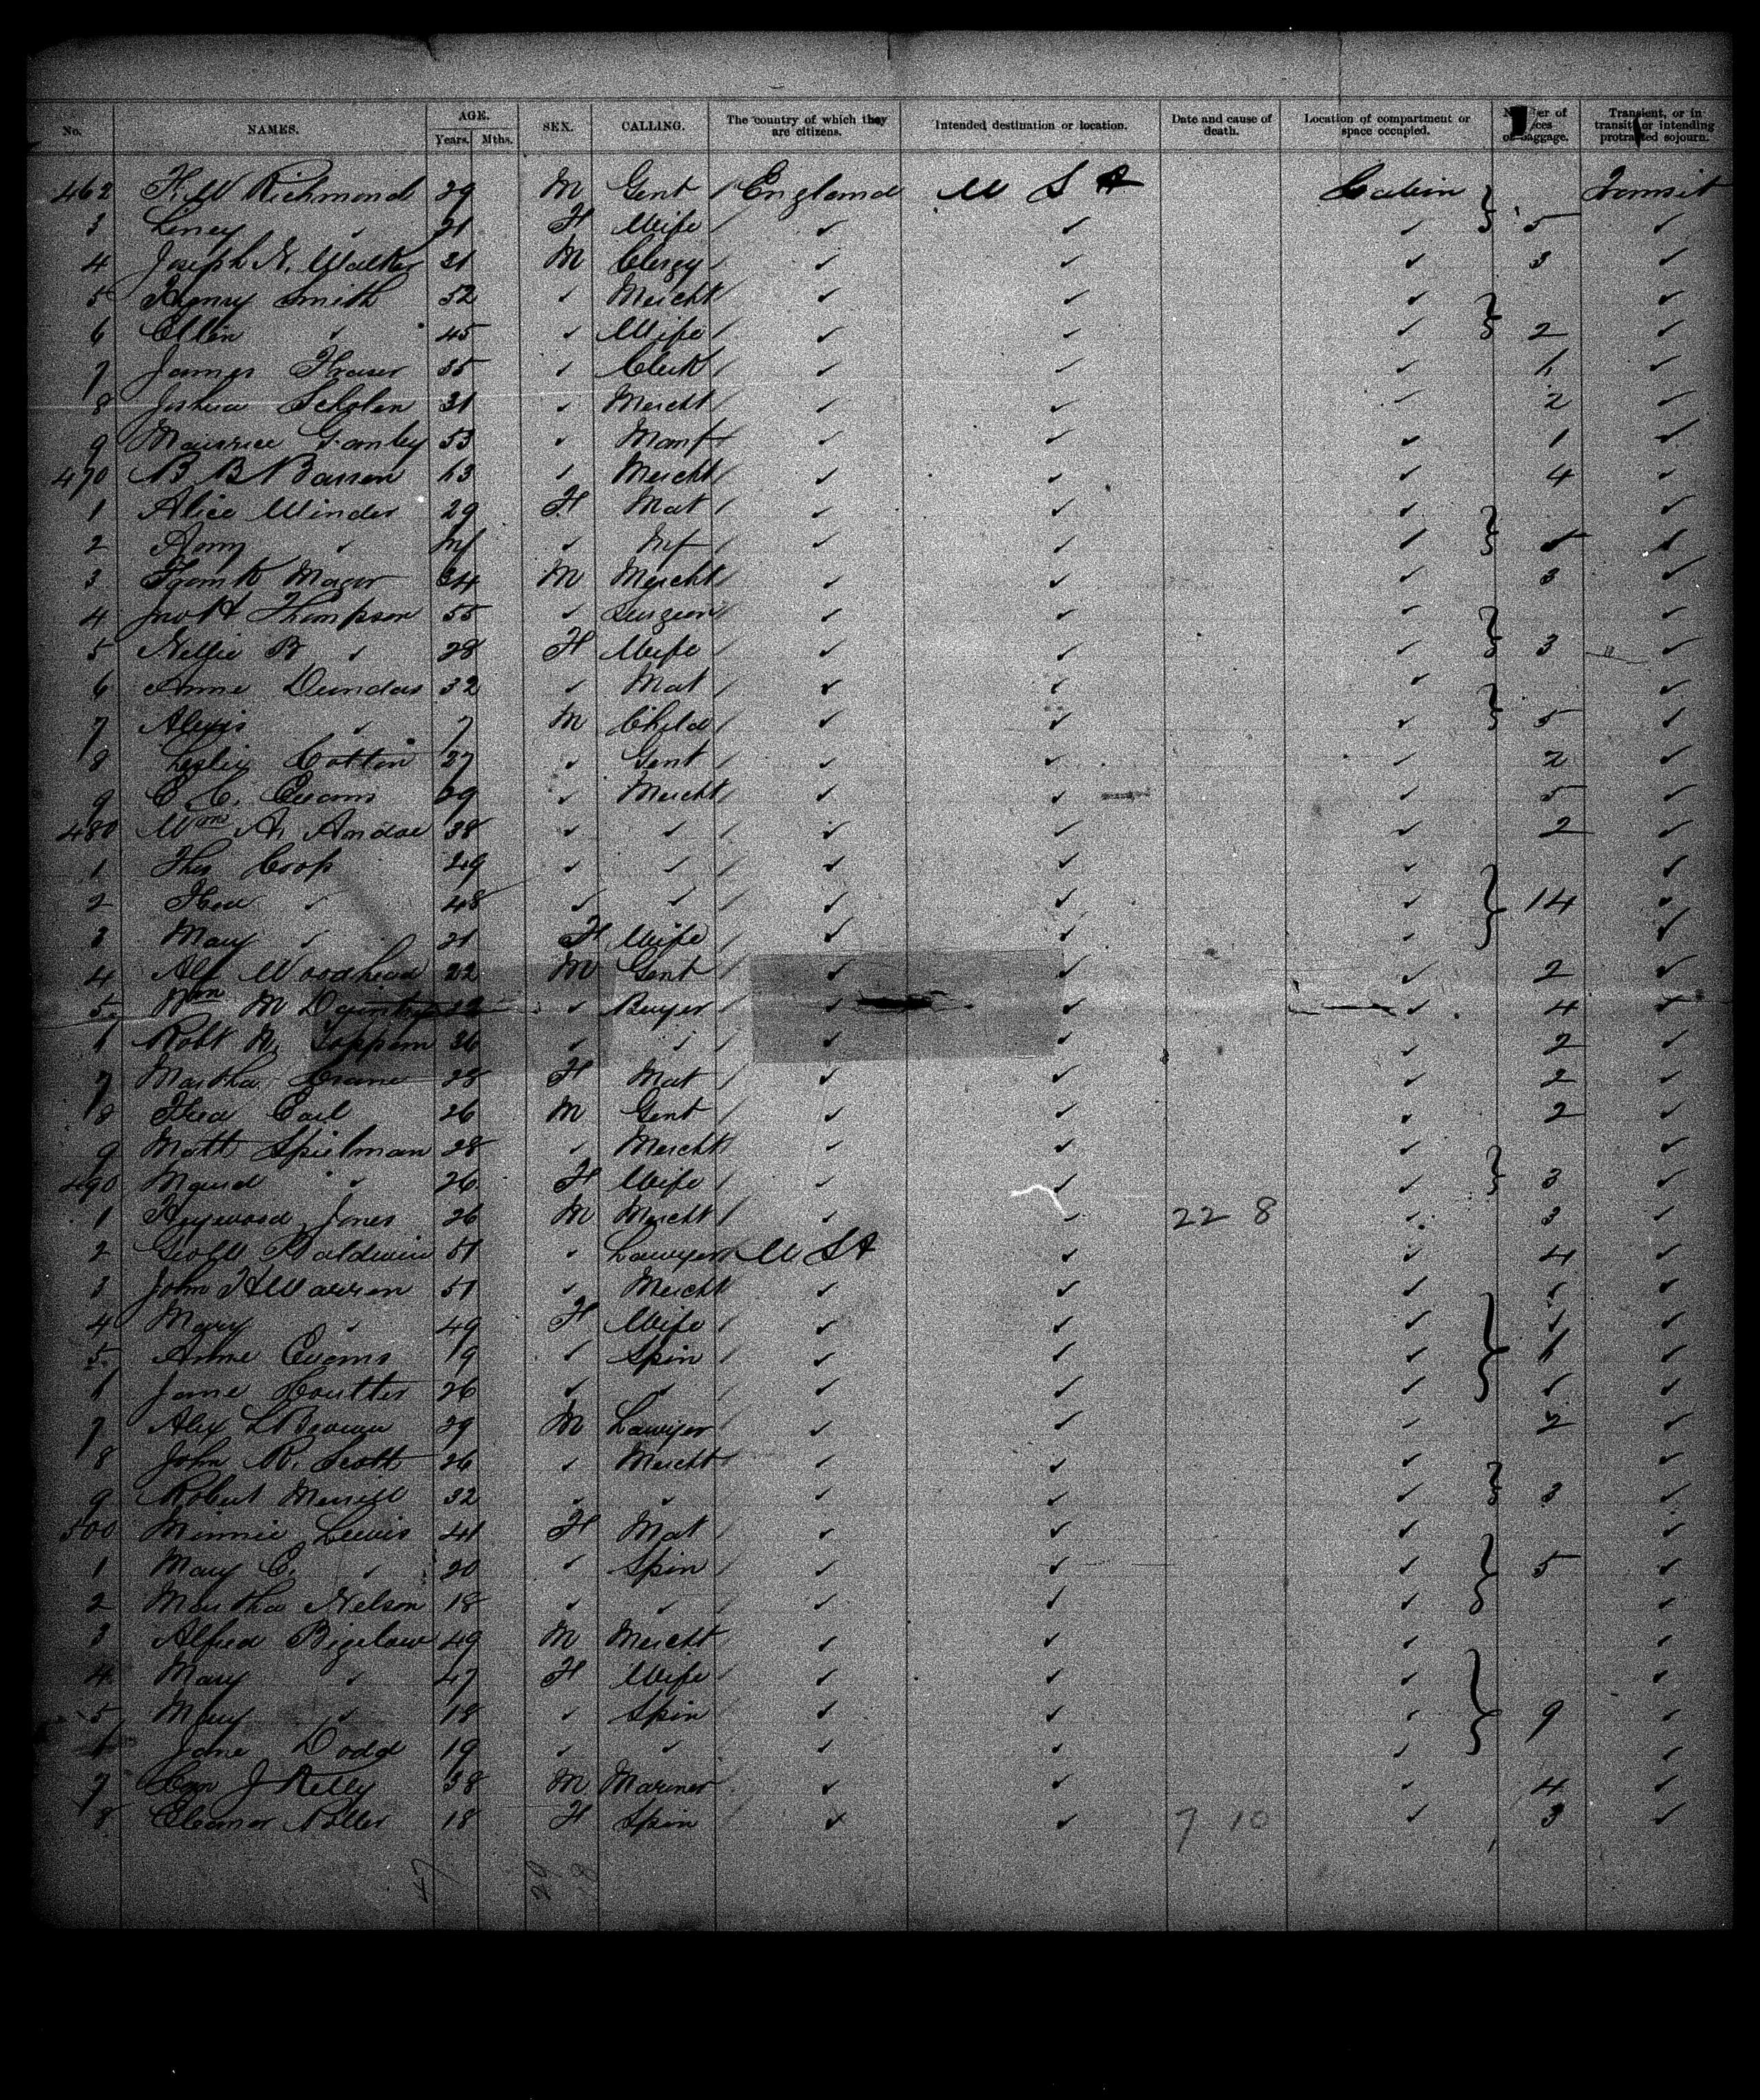 No. NAMES. AGE. Years. Mths. SEX. CALLING. The country of which they are citizens. Intended destination or location. Date and cause of death. Location of compartment or space occupied. of baggage. Transient, or in transit, or intending protracted sojourn.
462 Richmond 29 M Gent England U S A Cabin Transit
3 ✓ 21 F Wife ✓ ✓ ✓ 5 ✓
4 Joseph N. Walker 31 M Clergy ✓ ✓ ✓ 3 ✓
5 Henry Smith 52 ✓ Mercht ✓ ✓ ✓ ✓
6 Ellen ✓ 45 ✓ Wife ✓ ✓ ✓ 2 ✓
7 James Fraser 35 ✓ Clerk ✓ ✓ ✓ 1 ✓
8 Joshua 31 ✓ Mercht ✓ ✓ ✓ 2 ✓
9 Maurice 53 ✓ Manf ✓ ✓ ✓ 1 ✓
470 B B ✓ Mercht ✓ ✓ ✓ 4 ✓
1 Alice Winder 29 F Mat ✓ ✓ ✓ ✓
2 Amy ✓ Inf ✓ Inf ✓ ✓ ✓ ✓
3 Frank 34 M Mercht ✓ ✓ ✓ 3 ✓
4 Jno H Thompson 55 ✓ Surgeon ✓ ✓ ✓ ✓
5 Nellie B ✓ 28 F Wife ✓ ✓ ✓ 3 ✓
6 Anne Dundas 32 ✓ Mat ✓ ✓ ✓ ✓
7 Alexis ✓ 7 M Child ✓ ✓ ✓ 5 ✓
8 Leslie Cotton 37 ✓ Gent ✓ ✓ ✓ 2 ✓
9 C. C. Evans ✓ Mercht ✓ ✓ ✓ 5 ✓
480 Wm A. 38 ✓ ✓ ✓ ✓ ✓ 2 ✓
1 Thos 49 ✓ ✓ ✓ ✓ ✓ ✓
2 ✓ 48 ✓ ✓ ✓ ✓ ✓ 14 ✓
3 Mary ✓ 21 F Wife ✓ ✓ ✓ ✓
4 Alf Woodhead 22 M Gent ✓ ✓ ✓ 2 ✓
5 Wm M ✓ Buyer ✓ ✓ ✓ 4 ✓
6 Robt 36 ✓ ✓ ✓ ✓ ✓ 2 ✓
7 Martha Crane 28 F Mat ✓ ✓ ✓ 2 ✓
8 26 M Gent ✓ ✓ ✓ 2 ✓
9 Matt Spielman 28 ✓ Mercht ✓ ✓ ✓ ✓
490 Maud ✓ 26 F Wife ✓ ✓ ✓ 3 ✓
1 Heywood Jones 26 M Mercht ✓ ✓ 22 8 ✓ 3 ✓
2 Baldwin 51 ✓ Lawyer U S A ✓ ✓ 4 ✓
3 John H Warren 51 ✓ Mercht ✓ ✓ ✓ ✓
4 Mary ✓ 49 F Wife ✓ ✓ ✓ ✓
5 Anne Evans 19 ✓ Spin ✓ ✓ ✓ ✓
6 Jane 26 ✓ ✓ ✓ ✓ ✓ ✓
7 Alex L Brown 29 M Lawyer ✓ ✓ ✓ 2 ✓
8 John R. Scott 26 ✓ Mercht ✓ ✓ ✓ ✓
9 Robert Merrill 32 ✓ ✓ ✓ ✓ ✓ 3 ✓
500 Minnie Lewis 41 F Mat ✓ ✓ ✓ ✓
1 Mary C. ✓ 20 ✓ Spin ✓ ✓ ✓ 5 ✓
2 Martha Nelson 18 ✓ ✓ ✓ ✓ ✓ ✓
3 Alfred Bigelow 49 M Mercht ✓ ✓ ✓ ✓
4 Mary ✓ 47 F Wife ✓ ✓ ✓ ✓
5 Mary ✓ 18 ✓ Spin ✓ ✓ ✓ 9 ✓
6 Jane Dodd 19 ✓ ✓ ✓ ✓ ✓ ✓
7 J Kelly 38 M Mariner ✓ ✓ ✓ 4 ✓
8 Eleanor 18 F Spin ✓ ✓ 7 10 ✓ 3 ✓
47